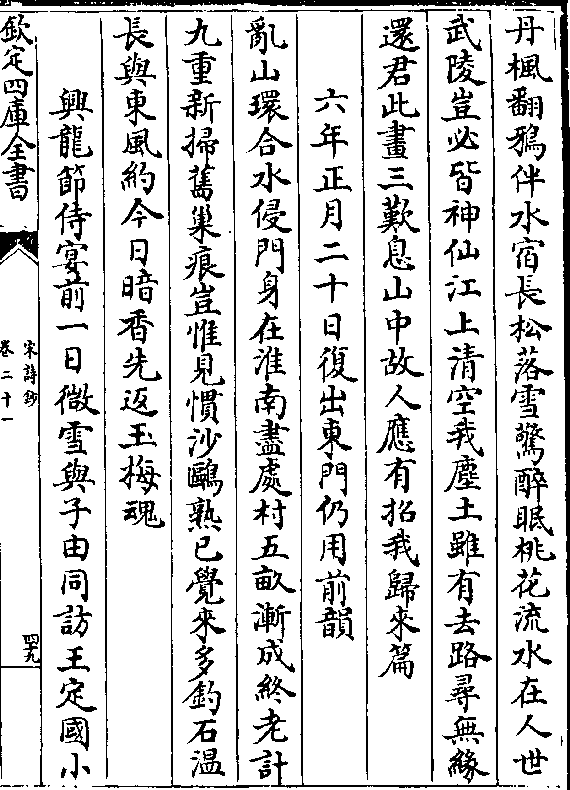 丹楓翻鴉伴水宿長松落雪驚醉眠桃花流水在人世
武陵豈必皆神仙江上清空我塵土雖有去路尋無緣
還君此畫三歎息山中故人應有招我歸來篇
六年正月二十日復出東門仍用前韻
亂山環合水侵門身在淮南盡處村五畝漸成終老計
九重新掃舊巢痕豈惟見慣沙鷗熟已覺來多釣石溫
長與東風約今日暗香先返玉梅魂
興龍節侍宴前一日微雪與子由同訪王定國小
欽定四庫全書
宋詩鈔
卷二十一
四九